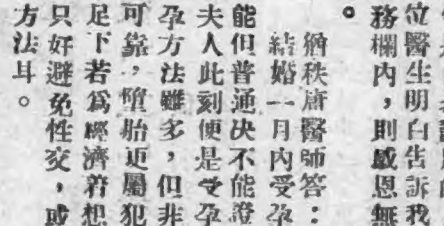 位醫生明白告訴我
務欄內,則感恩無
。
猶秩唐醫師答:
結婚一月內受孕
能但普通决不能證
夫人此刻便是受孕
孕方法雖多,但非
可靠,墮胎近屬犯
足下若爲經濟着想
只好避免性交,或
方法耳。